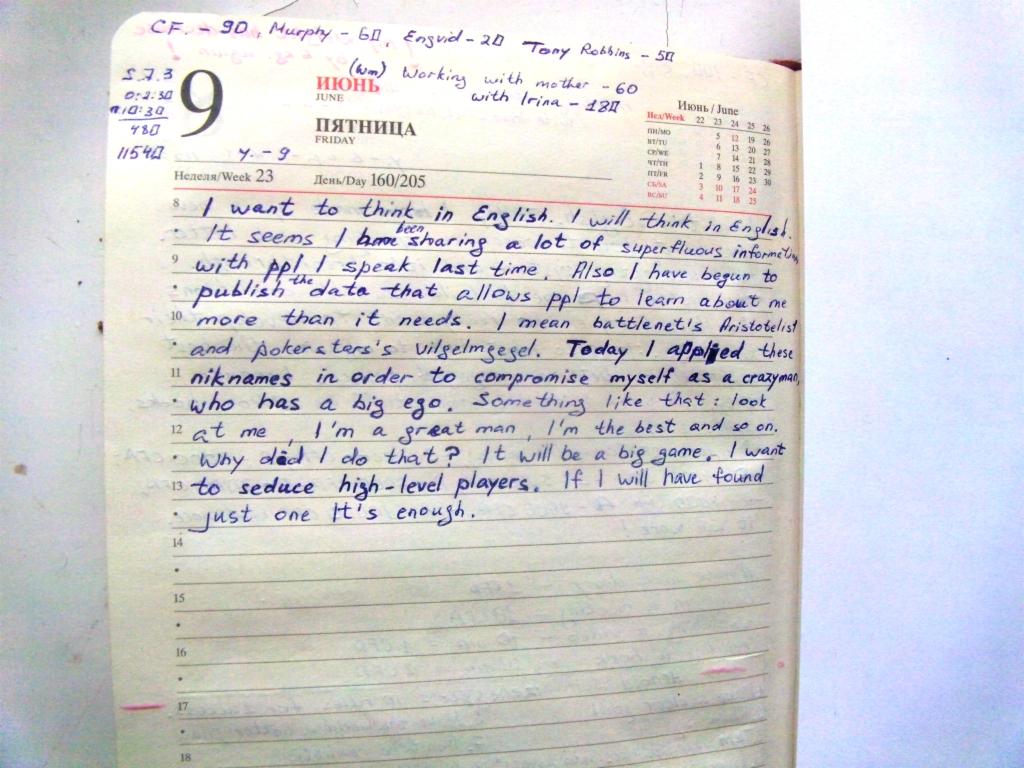 CF. - 90, Murphy - 60, Engvid - 20 Tony Robbins - 50
(Wm) Working with mother - 60
with Irina - 180
S.7.3
0:2:30
10:30
480
11540
9
ИЮНЬ
JUNE
ПЯТНИЦА
FRIDAY
y. - 9
Неделя/Week 23 День/Day 160/205
Июнь / June
Нед/Week 22 23 24 25 26
ПН/MO 5 12 19 26
ВТ/TU 6 13 20 27
СР/WE 7 14 21 28
ЧТ/TH 1 8 15 22 29
ПТ/FR 2 9 16 23 30
СБ/SA 3 10 17 24
ВС/SU 4 11 18 25
8 I want to think in English. I will think in English.
It seems I have been sharing a lot of superfluous information
9 with ppl I speak last time. Also I have begun to
publish the data that allows ppl to learn about me
10 more than it needs. I mean battlenet's Aristotelist
and pokerstars's vilgelmgegel. Today I applied these
11 niknames in order to compromise myself as a crazyman,
who has a big ego. Something like that: look
12 at me, I'm a great man, I'm the best and so on.
Why did I do that? It will be a big game. I want
13 to seduce high-level players. If I will have found
just one It's enough.
14
15
16
17
18